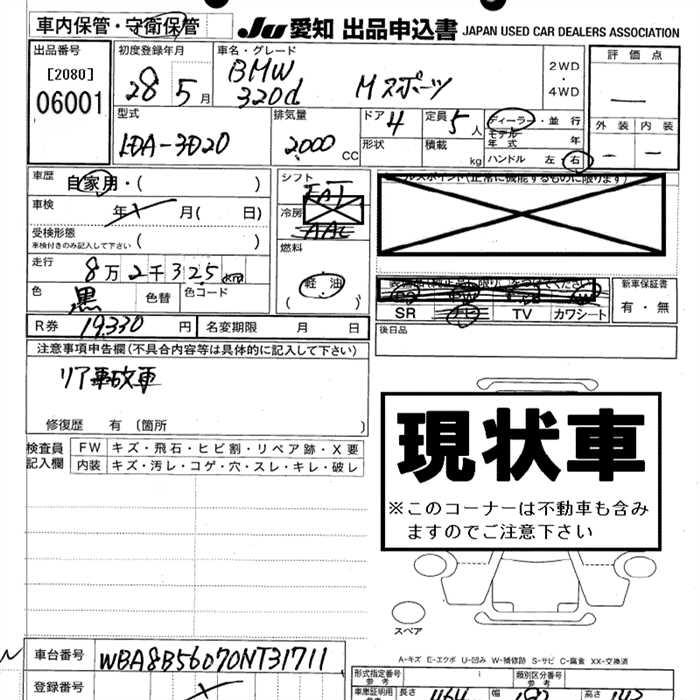 車内保管・守衛保管 Ju 愛知 出品申込書 JAPAN USED CAR DEALERS ASSOCIATION
出品番号
[2080]
06001
初度登録年月
28 5月
車名・グレード
BMW
320d Mスポーツ
2WD
・
4WD
評価点
—
外装 内装
— —
型式
LDA-3D20
排気量
2000 CC
ドア 4
形状
定員 5人
積載 kg
ディーラー・並行
モデル年式 年
ハンドル 左 右
車歴 自家用・( )
車検 年 月( 日)
受検形態
車検付きのみ記入して下さい ( )
走行 8万2千325km
色 黒 色替 色コード
R券 19330円 名変期限 月 日
シフト
FAT
冷房
AAC
燃料
軽油
( )
セールスポイント(正常に機能するものに限ります)
SR TV カワシート
新車保証書
有・無
後日品
注意事項申告欄(不具合内容等は具体的に記入して下さい)
リア事故車
修復歴 有 〔箇所 〕
検査員記入欄
FW キズ・飛石・ヒビ割・リペア跡・X要
内装 キズ・汚レ・コゲ・穴・スレ・キレ・破レ
現状車
※このコーナーは不動車も含み
ますのでご注意下さい
スペア
A-キズ E-エクボ U-凹み W-補修跡 S-サビ C-腐食 XX-交換済
車台番号 WBA8B56070NT31711
登録番号
形式指定番号
参考
類別区分番号
参考
車庫証明用
参考
長さ 464 幅 高さ 143